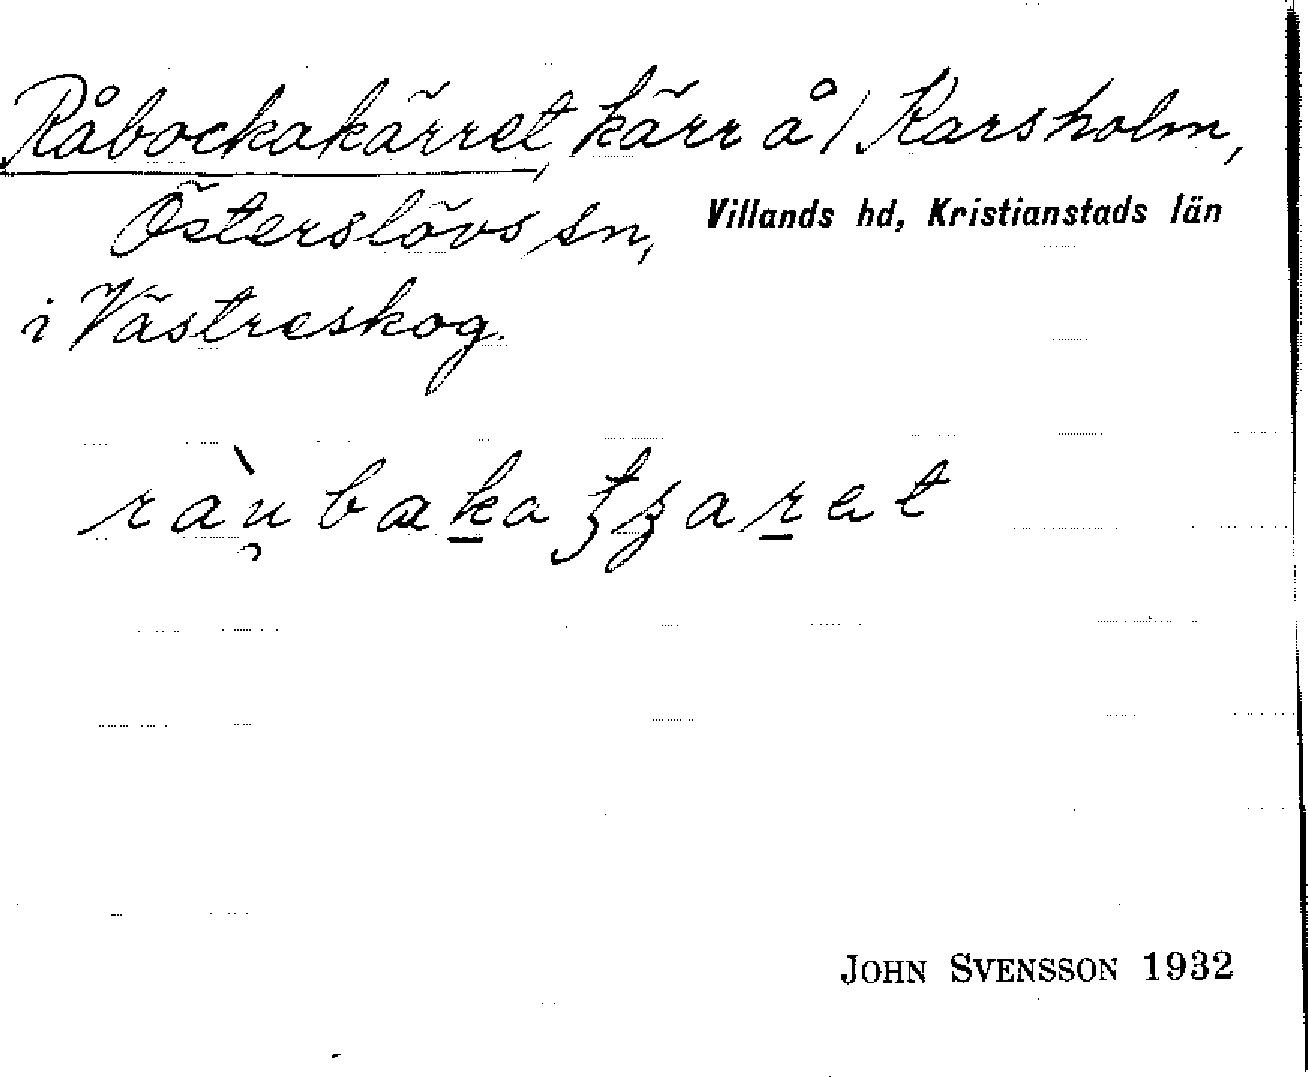 Råbockakärret, kärr å / Karsholm,
Österslövs sn, Villands hd, Kristianstads län
i Västreskog.
JOHN SVENSSON 1932